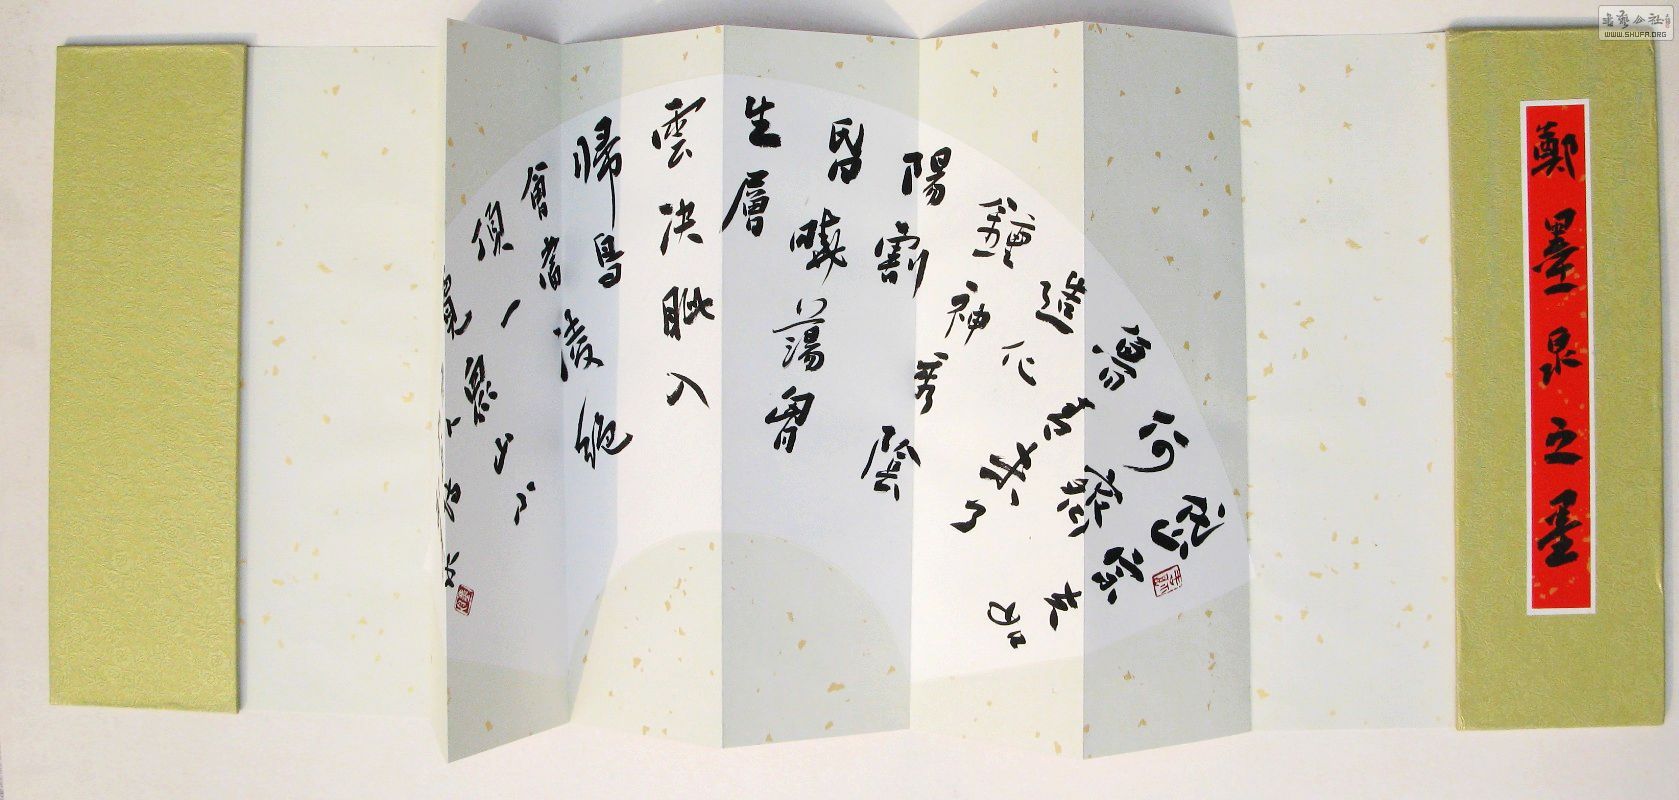 鄭墨泉之墨
岱宗夫如
何齊
魯青未了
造化
鍾神秀陰
陽割
昏曉蕩胸
生層
雲決眥入
歸鳥
會當凌絕
頂一
覽眾山小
書藝公社
WWW.SHUFA.ORG